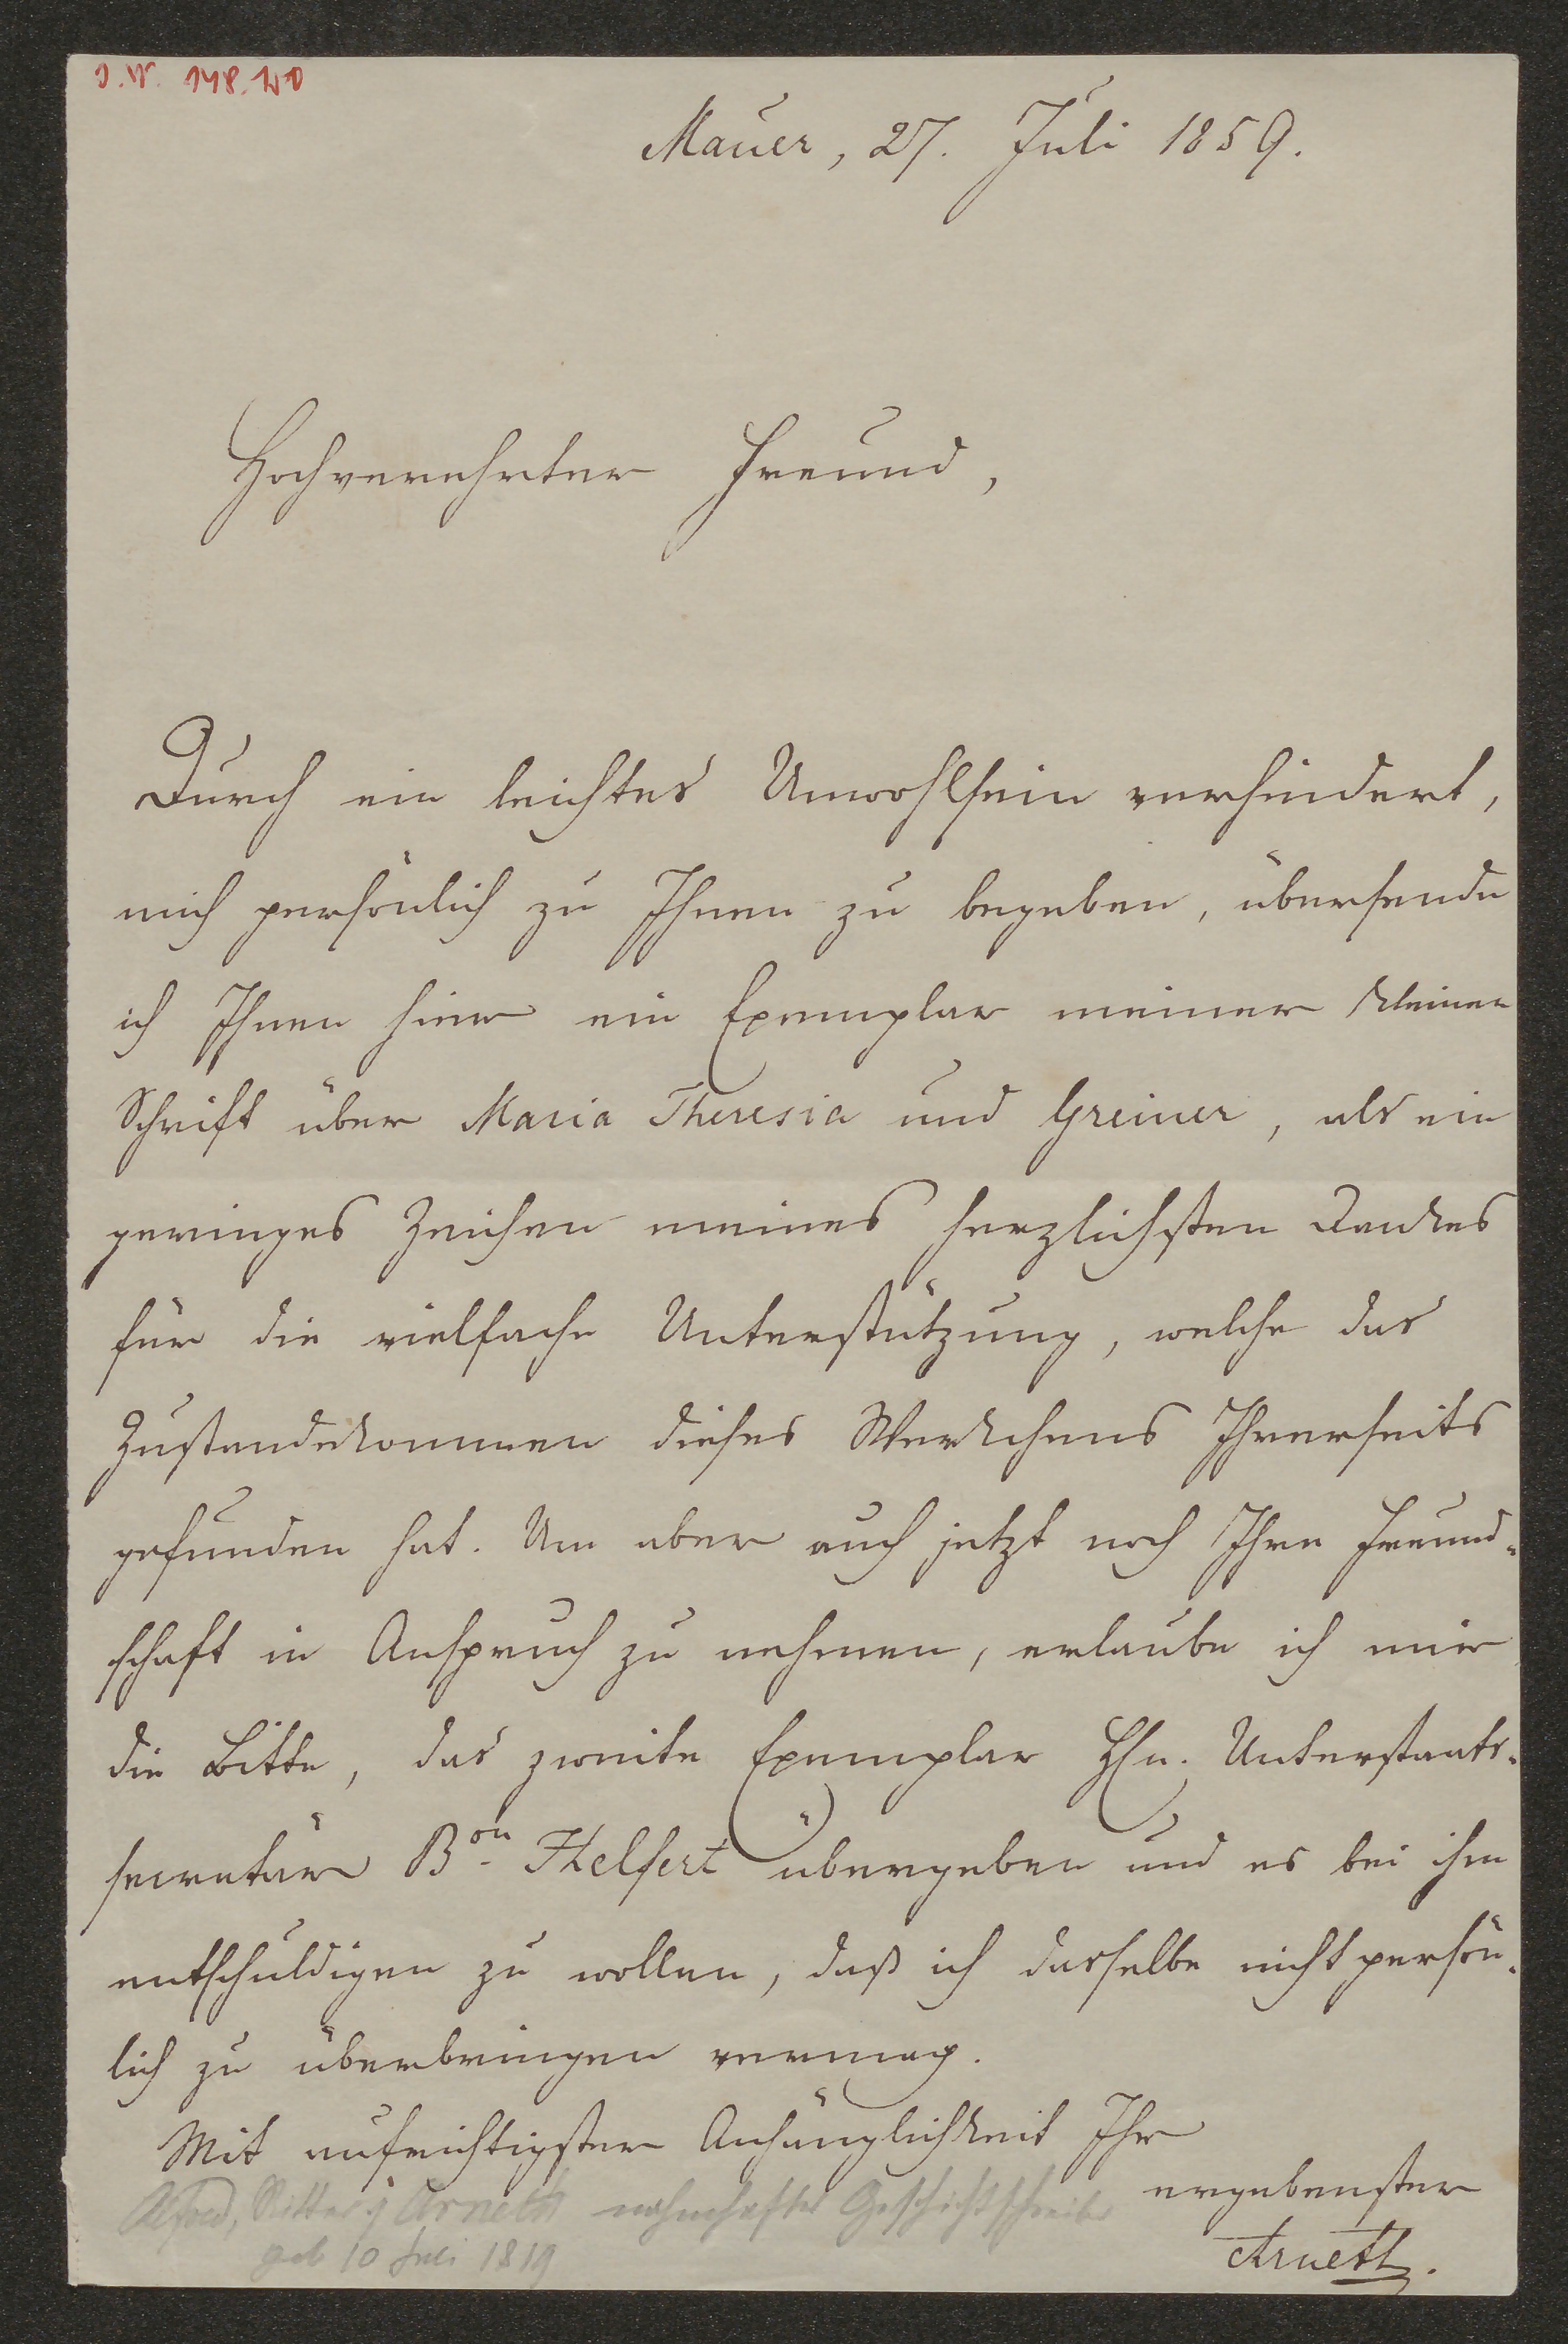 J. N. 148.120
Mauer, 27. Juli 1859.
Hochverehrter Freund,
Durch ein leichtes Unwohlsein verhindert,
mich persönlich zu Ihnen zu begeben, übersende
ich Ihnen hier ein Exemplar meiner kleinen
Schrift über Maria Theresia und Greiner, als ein
geringes Zeichen meines herzlichsten Dankes
für die vielfache Unterstützung, welche das
Zustandekommen dieses Werkchens Ihrerseits
gefunden hat. Um aber auch jetzt noch Ihre Freund-
schaft in Anspruch zu nehmen, erlaube ich mir
die Bitte, das zweite Exemplar Hrn. Unterstaats-
secretär Bon. Helfert übergeben und es bei ihm
entschuldigen zu wollen, daß ich dasselbe nicht persön-
lich zu überbringen vermag.
Mit aufrichtigster Anhänglichkeit Ihr
ergebenster
Arneth.
Alfred, Ritter v Arneth namhafter Geschichtschreiber
geb 10 Juli 1819